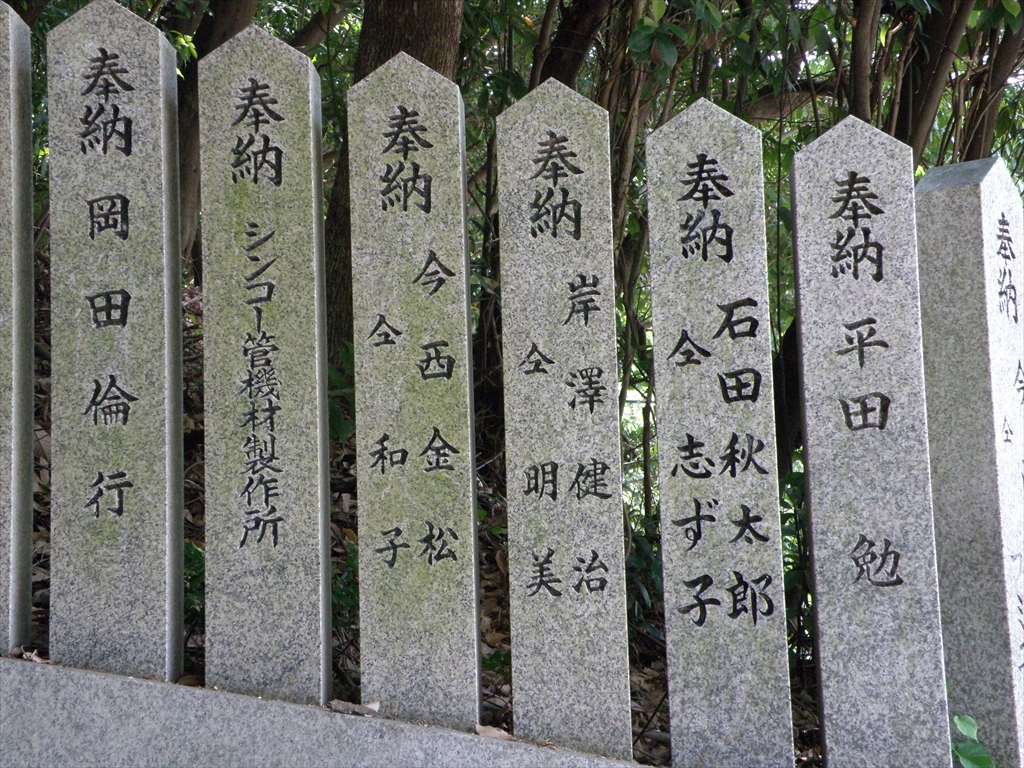 奉納 岡田倫行
奉納 シンコー管機材製作所
奉納 今西金松
仝 和子
奉納 岸澤健治
仝 明美
奉納 石田秋太郎
仝 志ず子
奉納 平田勉
奉納
仝